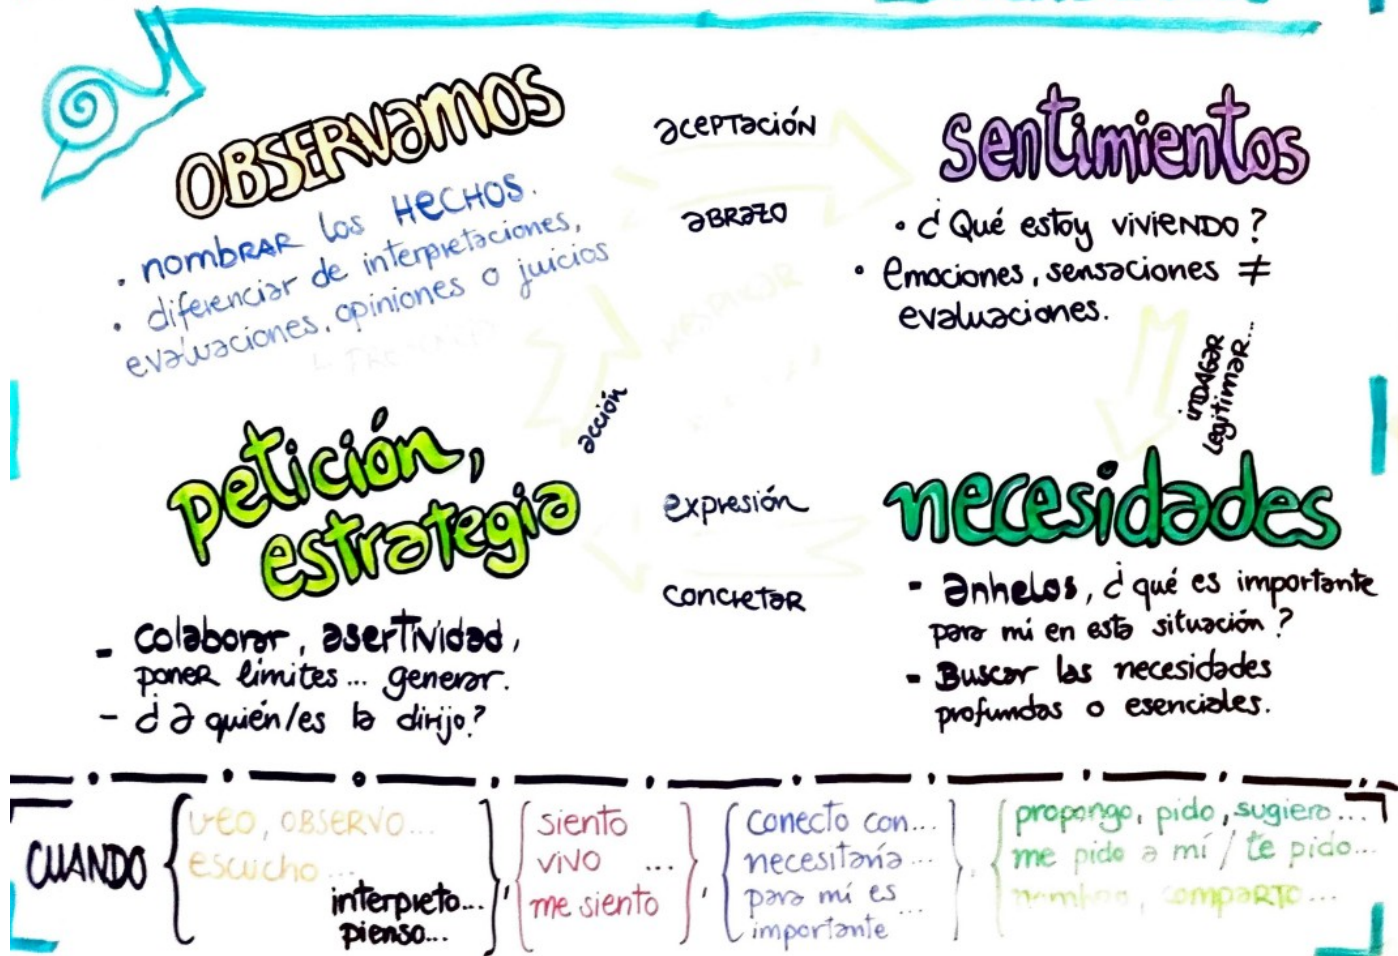 OBSERVAMOS
• nombrar los HECHOS.
• diferenciar de interpretaciones,
evaluaciones, opiniones o juicios
aceptación
abrazo
sentimientos
• ¿Qué estoy viviendo?
• emociones, sensaciones ≠
evaluaciones.
indagar
legitimar...
necesidades
- anhelos, ¿qué es importante
para mí en esta situación?
- Buscar las necesidades
profundas o esenciales.
expresión
concretar
petición,
estrategia
- colaborar, asertividad,
poner límites... generar.
- ¿a quién/es la dirijo?
acción
CUANDO
veo, OBSERVO...
escucho...
interpreto...
pienso...
siento
vivo ...
me siento
conecto con...
necesitaría...
para mí es
importante ...
propongo, pido, sugiero...
me pido a mí / te pido...
nombro, comparto...